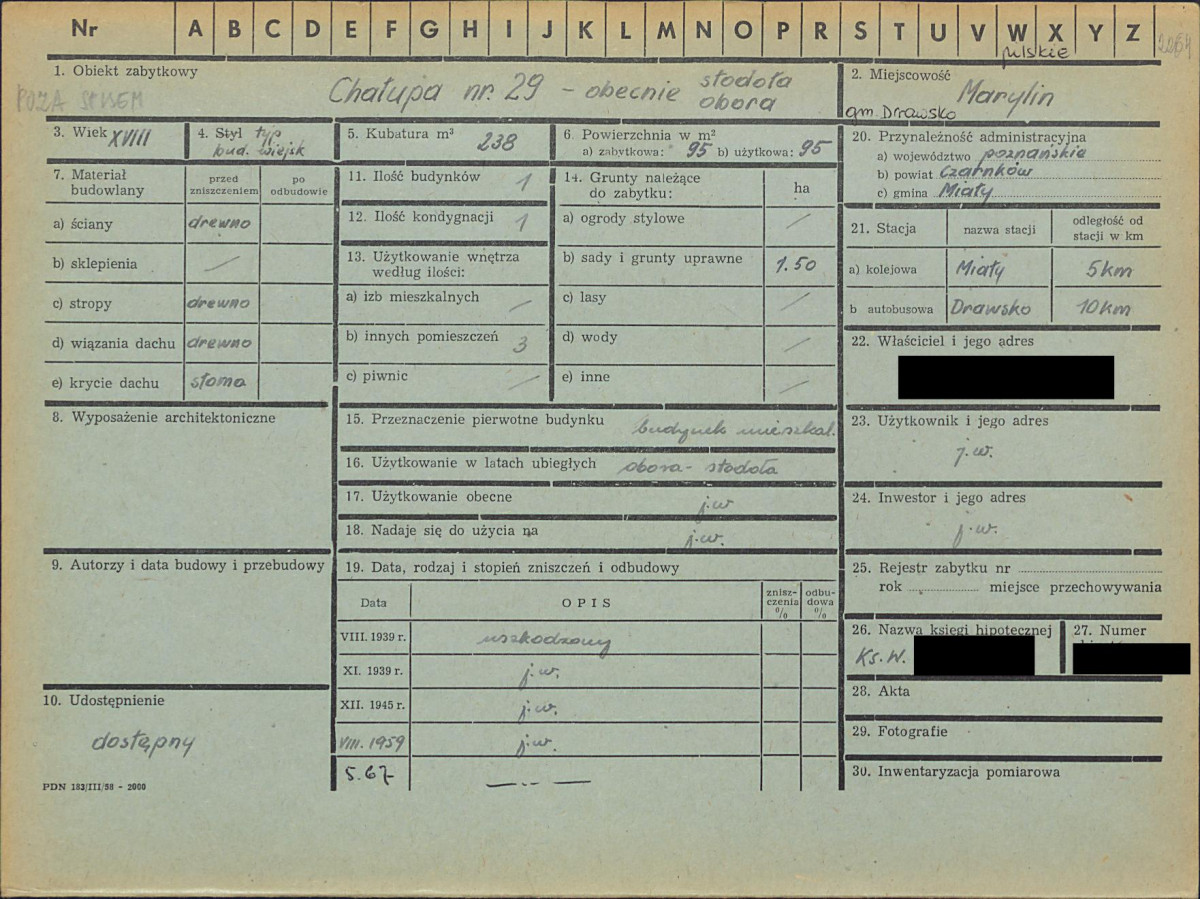 Nr A B C D E F G H I J K L M N O P R S T U V W X Y Z
pilskie
1. Obiekt zabytkowy
POZA SPISEM
Chałupa nr. 29 - obecnie stodoła
obora
2. Miejscowość
Marylin
gm Drawsko
3. Wiek XVIII
4. Styl typ
bud. wiejsk
5. Kubatura m³
238
6. Powierzchnia w m²
a) zabytkowa: 95 b) użytkowa: 95
20. Przynależność administracyjna
a) województwo poznańskie
b) powiat Czarnków
c) gmina Miały
7. Materiał
budowlany
przed
zniszczeniem
po
odbudowie
a) ściany drewno
b) sklepienia /
c) stropy drewno
d) wiązania dachu drewno
e) krycie dachu słoma
11. Ilość budynków 1
12. Ilość kondygnacji 1
13. Użytkowanie wnętrza
według ilości:
a) izb mieszkalnych /
b) innych pomieszczeń 3
c) piwnic /
14. Grunty należące
do zabytku:
ha
a) ogrody stylowe /
b) sady i grunty uprawne 1.50
c) lasy /
d) wody /
e) inne /
21. Stacja
nazwa stacji
odległość od
stacji w km
a) kolejowa Miały 5 km
b autobusowa Drawsko 10 km
22. Właściciel i jego adres
8. Wyposażenie architektoniczne
15. Przeznaczenie pierwotne budynku budynek mieszkal.
16. Użytkowanie w latach ubiegłych obora - stodoła
17. Użytkowanie obecne j.w
18. Nadaje się do użycia na j.w.
23. Użytkownik i jego adres
j.w.
24. Inwestor i jego adres
j.w.
9. Autorzy i data budowy i przebudowy
19. Data, rodzaj i stopień zniszczeń i odbudowy
Data
OPIS
znisz-
czenia
%
odbu-
dowa
%
VIII. 1939 r. uszkodzony
XI. 1939 r. j.w.
XII. 1945 r. j.w.
VIII. 1959 j.w.
5.67 —..—
25. Rejestr zabytku nr
rok miejsce przechowywania
26. Nazwa księgi hipotecznej
Ks. W.
27. Numer
28. Akta
29. Fotografie
30. Inwentaryzacja pomiarowa
10. Udostępnienie
dostępny
PDN 183/III/58 - 2000